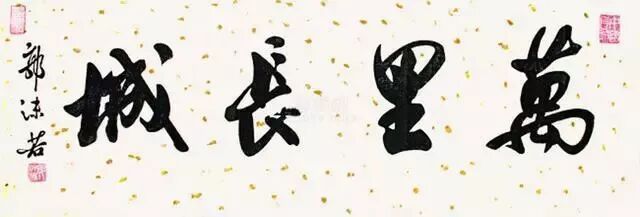 萬里長城
郭沫若